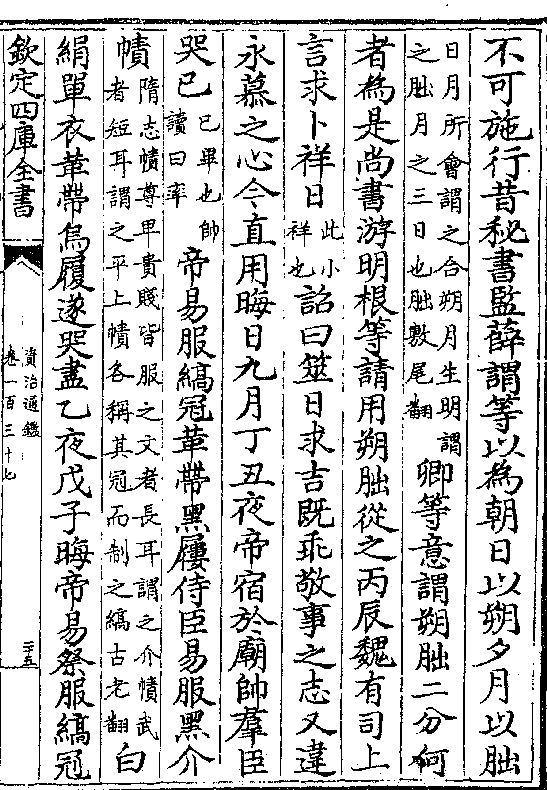 不可施行昔秘書監薛謂等以為朝日以朔夕月以朏
日月所會謂之合朔月生明謂
之朏月之三日也朏敷尾翻
卿等意謂朔朏二分何
者為是尚書游明根等請用朔朏從之丙辰魏有司上
言求卜祥日
此小
祥也
詔曰筮日求吉既乖敬事之志又違
永慕之心今直用晦日九月丁丑夜帝宿於廟帥羣臣
哭已
已畢也帥
讀曰率
帝易服縞冠革帶黑屨侍臣易服黑介
幘
隋志幘尊卑貴賤皆服之文者長耳謂之介幘武
者短耳謂之平上幘各稱其冠而制之縞古老翻
白
絹單衣革帶烏履遂哭盡乙夜戊子晦帝易祭服縞冠
欽定四庫全書
資治通鑑
卷一百三十七
二十五